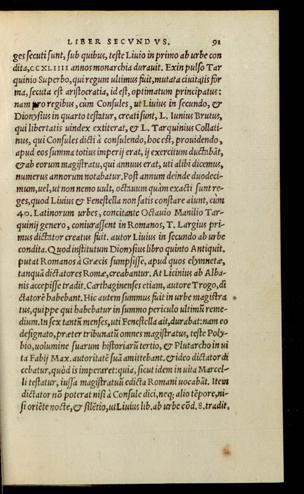 LIBER SECVNDVS. 91
ges secuti sunt, sub quibus, teste Liuio in primo ab urbe con
dita, CCXLIIII annos monarchia durauit. Exin pulso Tar
quinio Superbo, qui regum ultimus fuit, mutata ciuitatis for
ma, secuta est aristocratia, id est, optimatum principatus:
nam pro regibus, cùm Consules, ut Liuius in secundo, &
Dionysius in quarto testatur, creati sunt, L. Iunius Brutus,
qui libertatis uindex extiterat, & L. Tarquinius Collati-
nus, qui Consules dicti à consulendo, hoc est, prouidendo,
apud eos summa totius imperij erat, ij exercitum ducebāt,
& ab eorum magistratu, qui annuus erat, uti alibi dicemus,
numerus annorum notabatur. Post annum deinde duodeci-
mum, uel, ut non nemo uult, octauum quàm exacti sunt re-
ges, quod Liuius & Fenestella non satis constare aiunt, cùm
40. Latinorum urbes, concitante Octauio Manilio Tar-
quinij genero, coniurassent in Romanos, T. Largius pri-
mus dictator creatus fuit. autor Liuius in secundo ab urbe
condita. Quod institutum Dionysius libro quinto Antiquit.
putat Romanos à Græcis sumpsisse, apud quos elymnetæ,
tanquā dictatores Romæ, creabantur. At Licinius ab Alba-
nis accepisse tradit. Carthaginenses etiam, autore Trogo, di
ctatorē habebant. Hic autem summus fuit in urbe magistra
tus, quippe qui habebatur in summo periculo ultimū reme-
dium. Is sex tantū menses, uti Fenestella ait, durabat: nam eo
designato, præter tribunatū omnes magistratus, teste Poly-
bio, uolumine suarum historiarū tertio, & Plutarcho in ui
ta Fabij Max. autoritatē suā amittebant. & ideo dictator di
cebatur, quòd is imperaret: quia, sicut idem in uita Marcel-
li testatur, iussa magistratuū edicta Romani uocabāt. Item
dictator nō poterat nisi à Consule dici, neq; alio tēpore, ni-
si oriēte nocte, & silētio, ut Liuius lib. ab urbe cōd. 8. tradit.